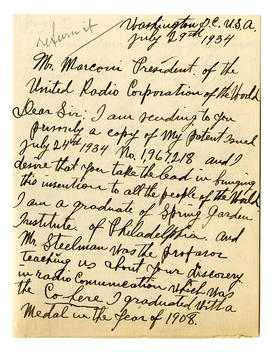 return it
Washington D.C. U.S.A.
July 29th 1934
Mr. Marconi President of the
United Radio Corporation of the World
Dear Sir: I am sending to you
a copy of My Patent Issued
July 24th 1934 No. 1967218 and I
desire that You take the lead in bringing
this invention to all the people of the World
I am a graduate of Spring Garden
Institute. of Philadelphia. and
Mr. Steelman was the profasor
teaching us about Your discovery
in radio Communication which was
the Co-here I graduated with a
Medal in the Year of 1908.